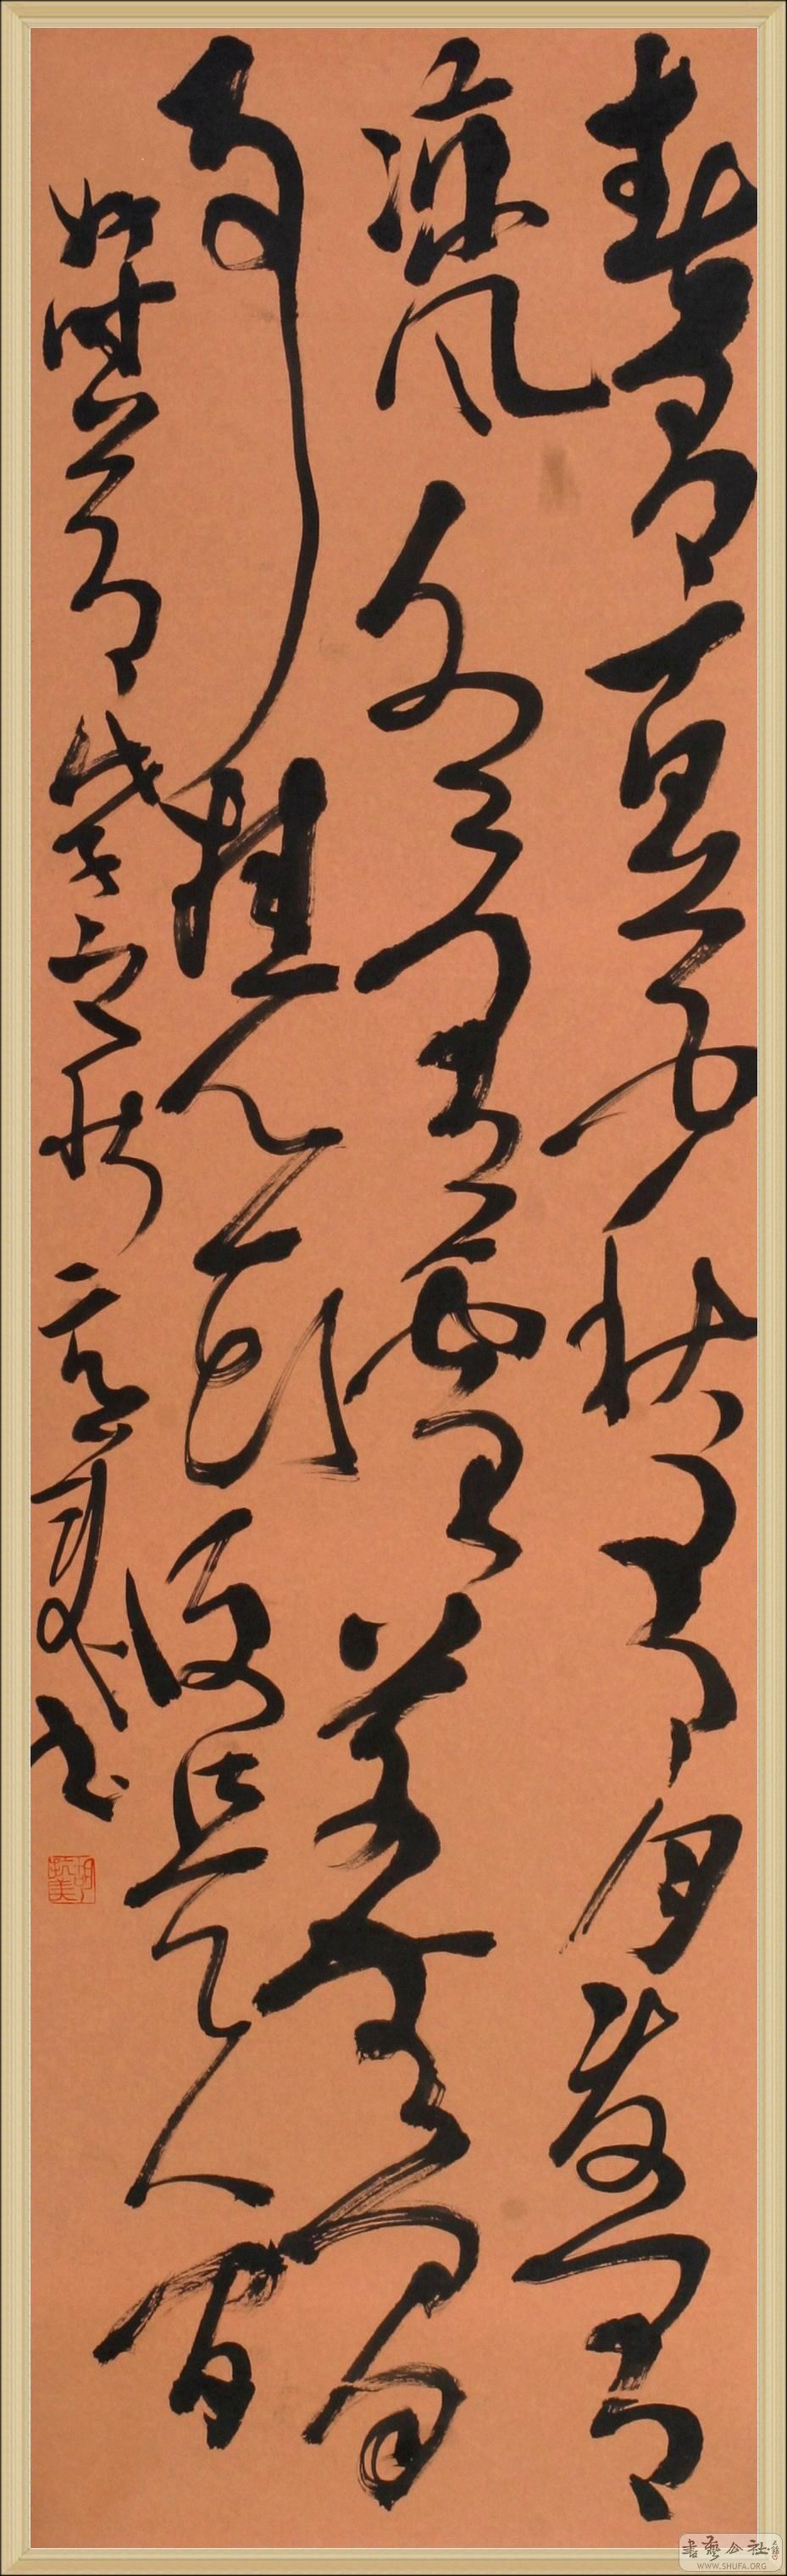 春有百花秋有月夏有
凉风冬有雪若无闲
事挂心头便是人间
好时节 戊子之秋 书
胡抗美
書藝公社
WWW.SHUFA.ORG